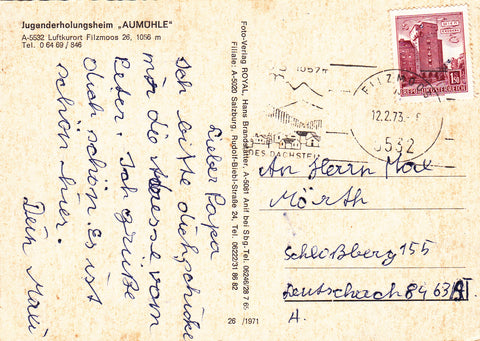 Jugenderholungsheim „AUMÜHLE"
A-5532 Luftkurort Filzmoos 26, 1056 m
Tel. 0 64 69 / 846
Lieber Papa
Ich bitte dich schicke
mir die Adresse vom
Peter. Ich grüße
dich schön. Es ist
schön hier.
Dein Maxi
Foto-Verlag ROYAL, Hans Brandstätter A-5081 Anif bei Sbg.-Tel. 06246/28 7 65
Filiale: A-5020 Salzburg, Rudolf-Biebl-Straße 24, Tel. 06222/31 86 82
26 /1971
1057
DES DACHSTEIN
FILZMOOS
12.2.73
5532
REPUBLIK ÖSTERREICH
An Herrn Max
Mörth
Schloßberg 155
Leutschach 8463
A.